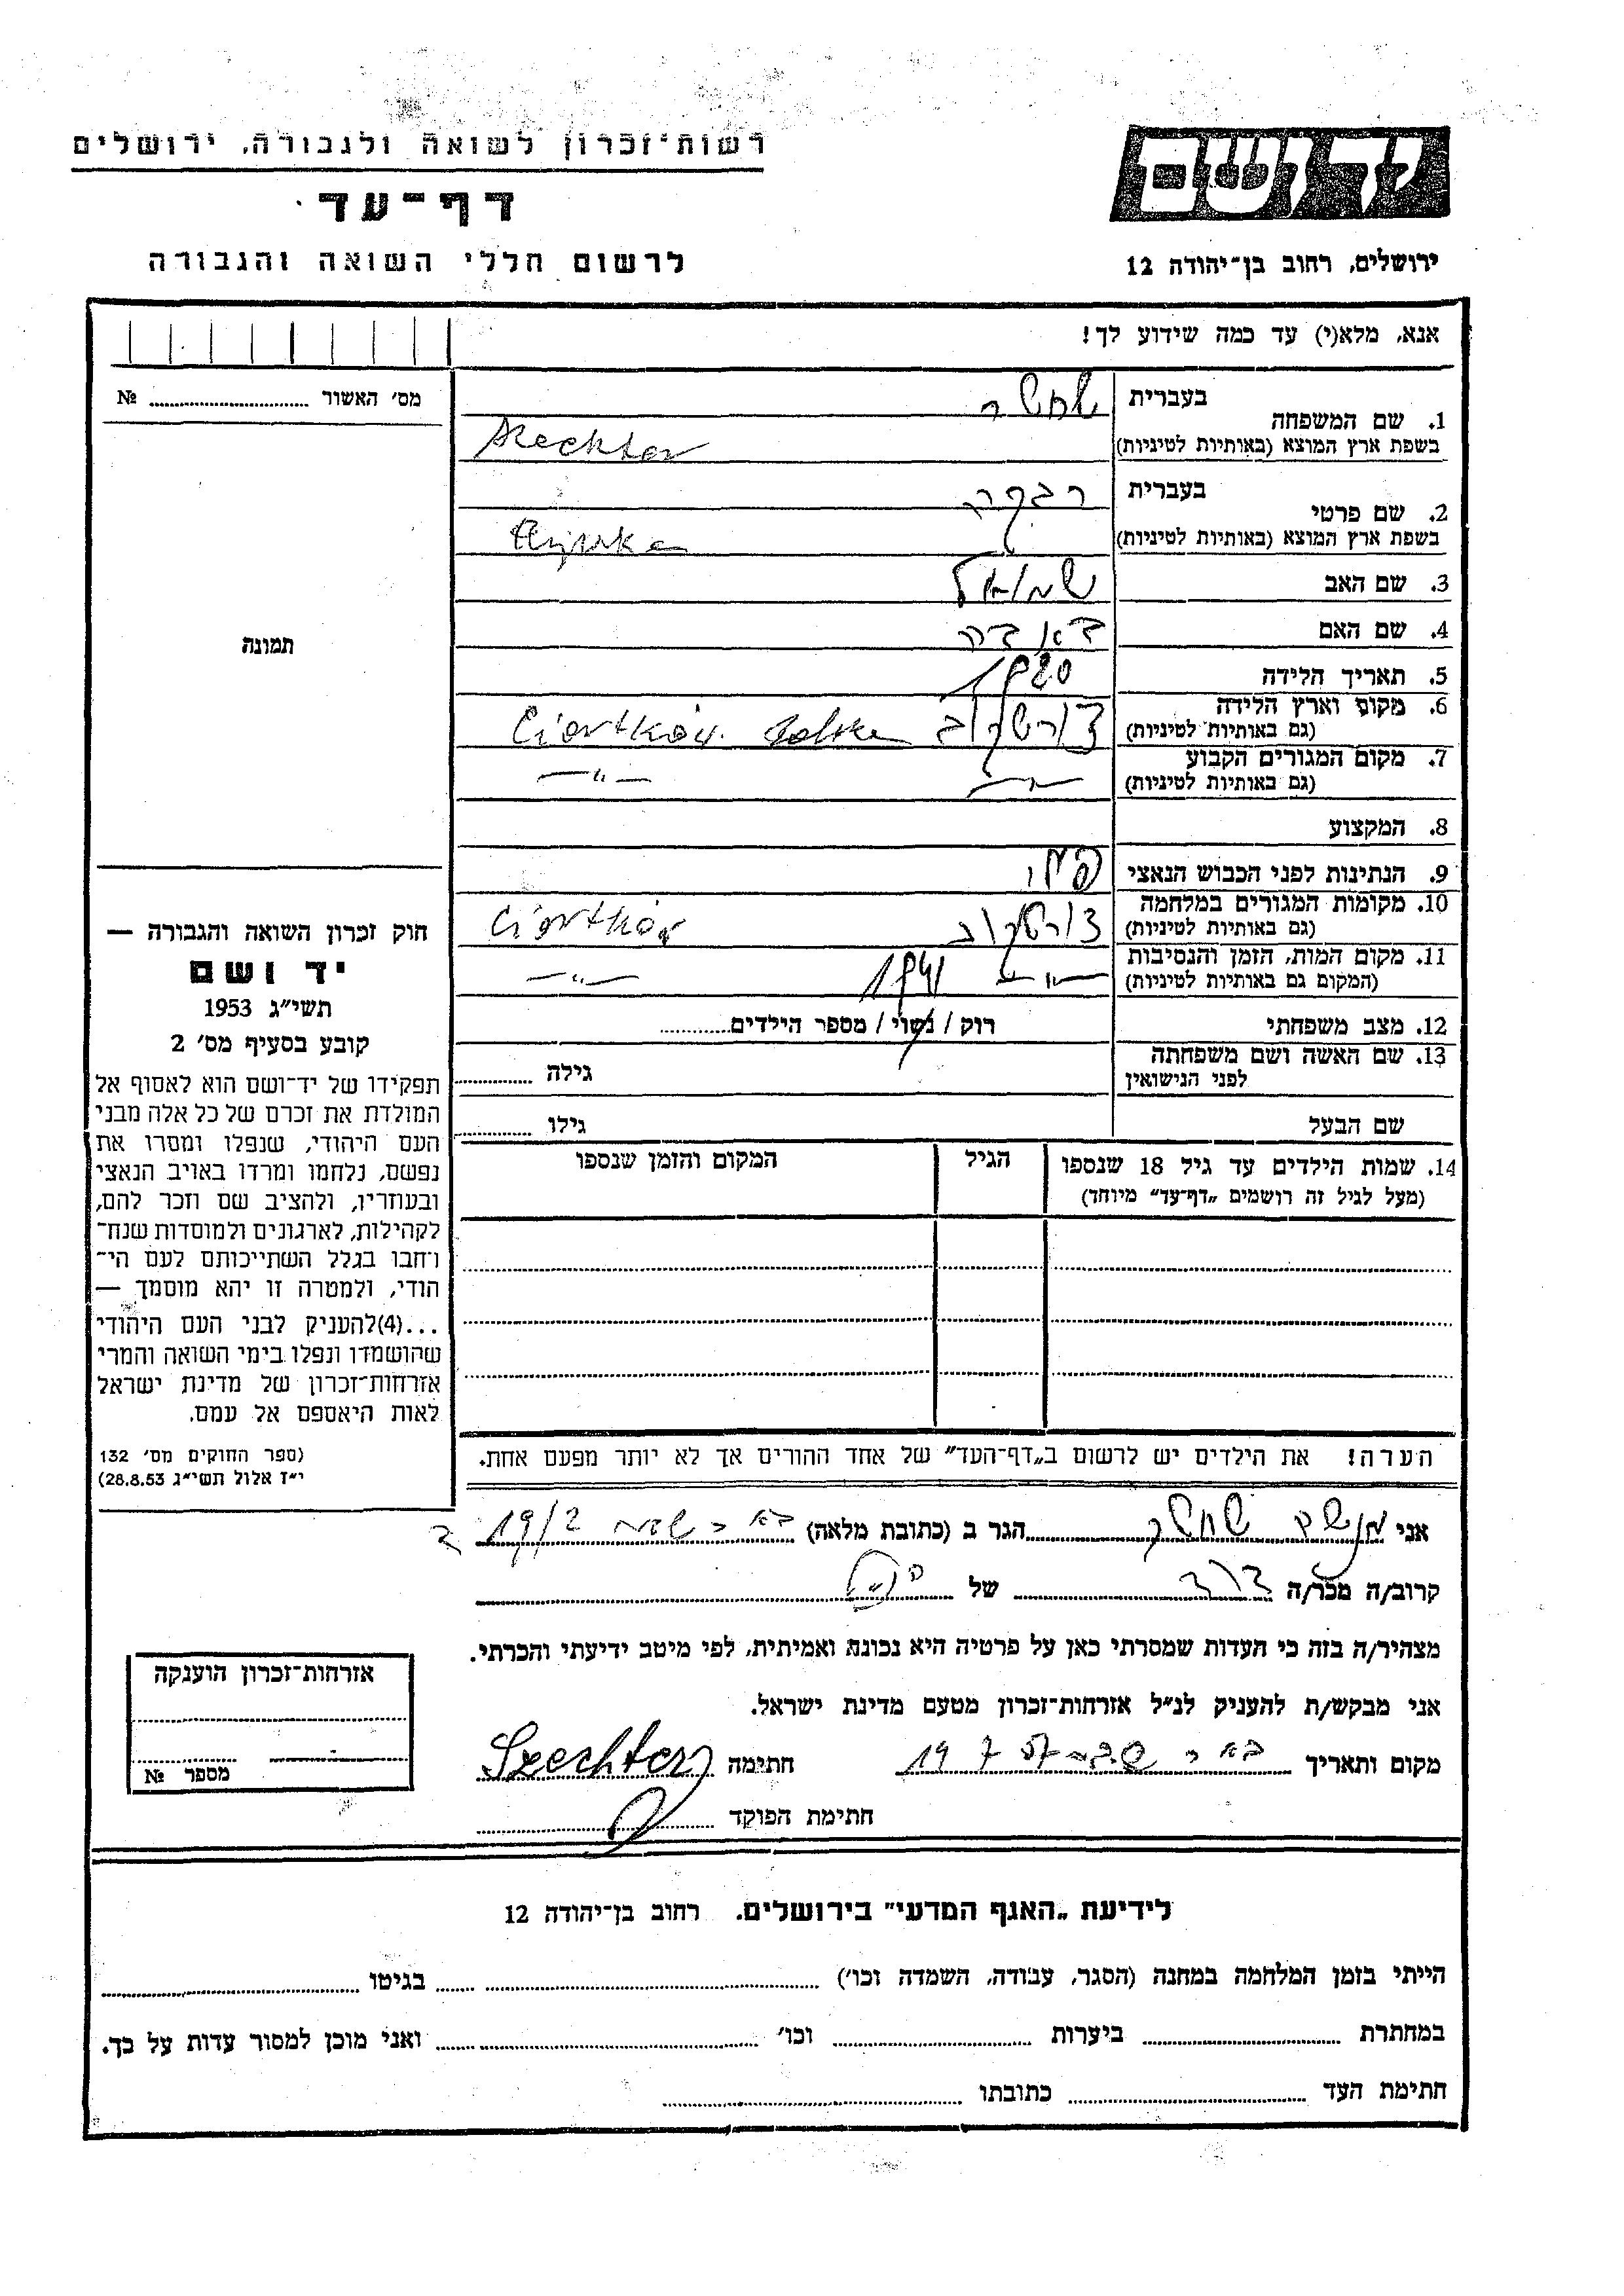 רשות־זכרון לשואה ולגבורה, ירושלים
יד ושם
דף־עד
ירושלים, רחוב בן־יהודה 12
לרשום חללי השואה והגבורה
אנא, מלא(י) עד כמה שידוע לך!
מס׳ האשור № 
תמונה
1. שם המשפחה
בעברית שחטר
בשפת ארץ המוצא (באותיות לטיניות) Szechter
2. שם פרטי
בעברית רבקה
בשפת ארץ המוצא (באותיות לטיניות)
3. שם האב שמואל
4. שם האם
5. תאריך הלידה 1920
6. מקום וארץ הלידה צ׳ורטקוב Ciortków. Polska
(גם באותיות לטיניות)
7. מקום המגורים הקבוע —״— —״—
(גם באותיות לטיניות)
8. המקצוע
9. הנתינות לפני הכבוש הנאצי פולני
10. מקומות המגורים במלחמה צ׳ורטקוב Ciortków
(גם באותיות לטיניות)
11. מקום המות, הזמן והנסיבות —״— 1941 —״—
(המקום גם באותיות לטיניות)
12. מצב משפחתי רוק / נשוי / מספר הילדים
13. שם האשה ושם משפחתה גילה
לפני הנישואין
שם הבעל גילו
14. שמות הילדים עד גיל 18 שנספו הגיל המקום והזמן שנספו
(מעל לגיל זה רושמים „דף־עד״ מיוחד)
הערה! את הילדים יש לרשום ב„דף־העד״ של אחד ההורים אך לא יותר מפעם אחת.
חוק זכרון השואה והגבורה —
יד ושם
תשי״ג 1953
קובע בסעיף מס׳ 2
תפקידו של יד־ושם הוא לאסוף אל
המולדת את זכרם של כל אלה מבני
העם היהודי, שנפלו ומסרו את
נפשם, נלחמו ומרדו באויב הנאצי
ובעוזריו, ולהציב שם וזכר להם,
לקהילות, לארגונים ולמוסדות שנח־
רחבו בגלל השתייכותם לעם הי־
הודי, ולמטרה זו יהא מוסמך —
...(4) להעניק לבני העם היהודי
שהושמדו ונפלו בימי השואה והמרי
אזרחות־זכרון של מדינת ישראל
לאות היאספם אל עמם.
(ספר החוקים מס׳ 132
י״ז אלול תשי״ג 28.8.53)
אני שחטר הגר ב (כתובת מלאה) 19/2
קרוב/ה מכר/ה דוד של
מצהיר/ה בזה כי העדות שמסרתי כאן על פרטיה היא נכונה ואמיתית, לפי מיטב ידיעתי והכרתי.
אני מבקש/ת להעניק לנ״ל אזרחות־זכרון מטעם מדינת ישראל.
מקום ותאריך חתימה Szechter
חתימת הפוקד
אזרחות־זכרון הוענקה
מספר №
לידיעת „האגף המדעי״ בירושלים. רחוב בן־יהודה 12
הייתי בזמן המלחמה במחנה (הסגר, עבודה, השמדה וכו׳) בגיטו
במחתרת ביערות וכו׳ ואני מוכן למסור עדות על כך.
חתימת העד כתובתו